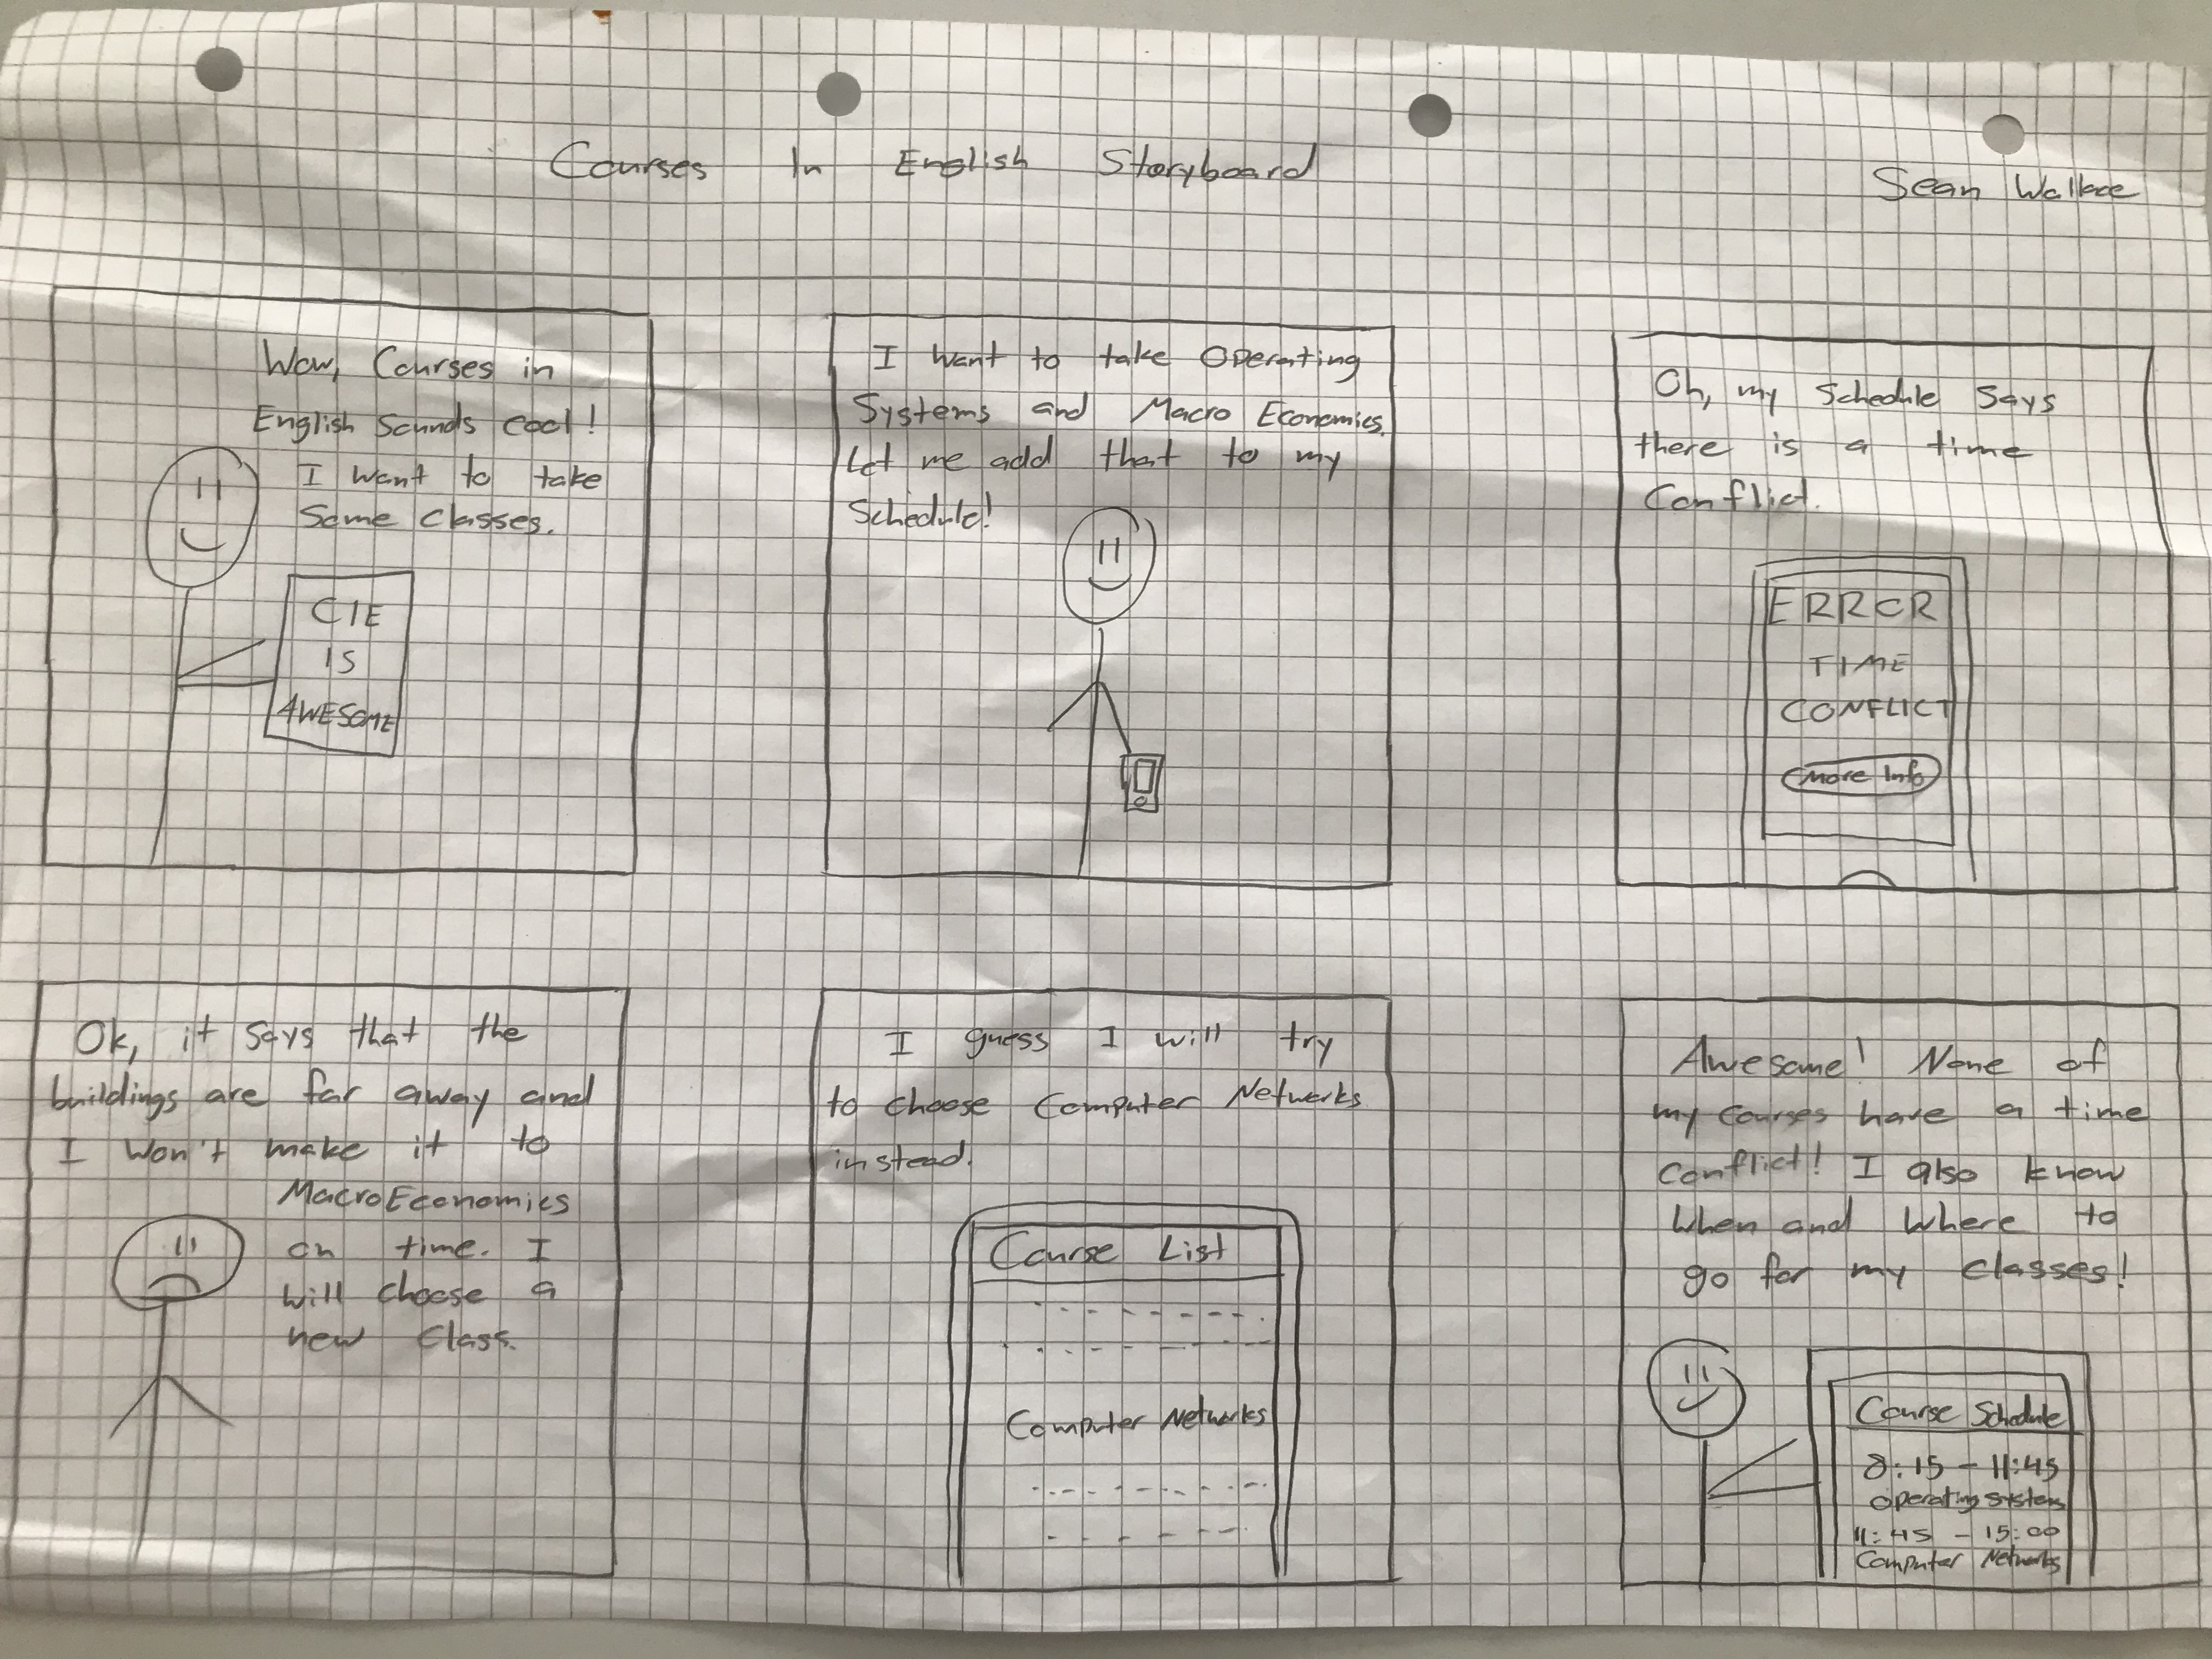 Courses in English Storyboard
Sean Wallace
Wow, Courses in
English Sounds cool!
I want to take
Some classes.
CIE
IS
AWESOME
I want to take Operating
Systems and Macro Economics
Let me add that to my
Schedule!
Oh, my Schedule Says
there is a time
Conflict.
ERROR
TIME
CONFLICT
more info
Ok, it Says that the
buildings are far away and
I won't make it to
MacroEconomics
on time. I
will choose a
new class.
I guess I will try
to choose Computer Networks
instead.
Course List
Computer Networks
Awesome! None of
my courses have a time
Conflict! I also know
When and Where to
go for my classes!
Course Schedule
8:15 - 11:45
operating systems
11:45 - 15:00
Computer Networks